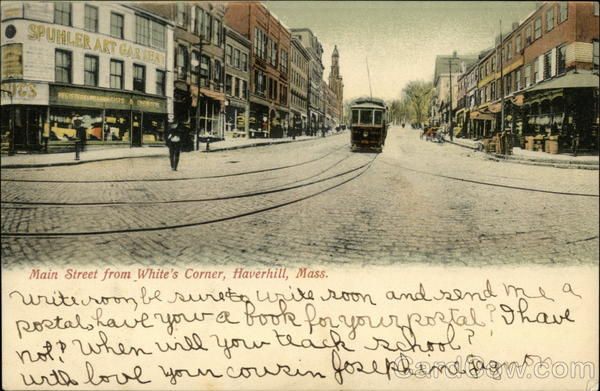 SPUHLER ART GARDEN
Main Street from White's Corner, Haverhill, Mass.
Write soon, be sure to write soon and send me a
postal, have you a book for your postal? I have
not? When will you teach school?
with love your cousin Josephine
CardCow.com